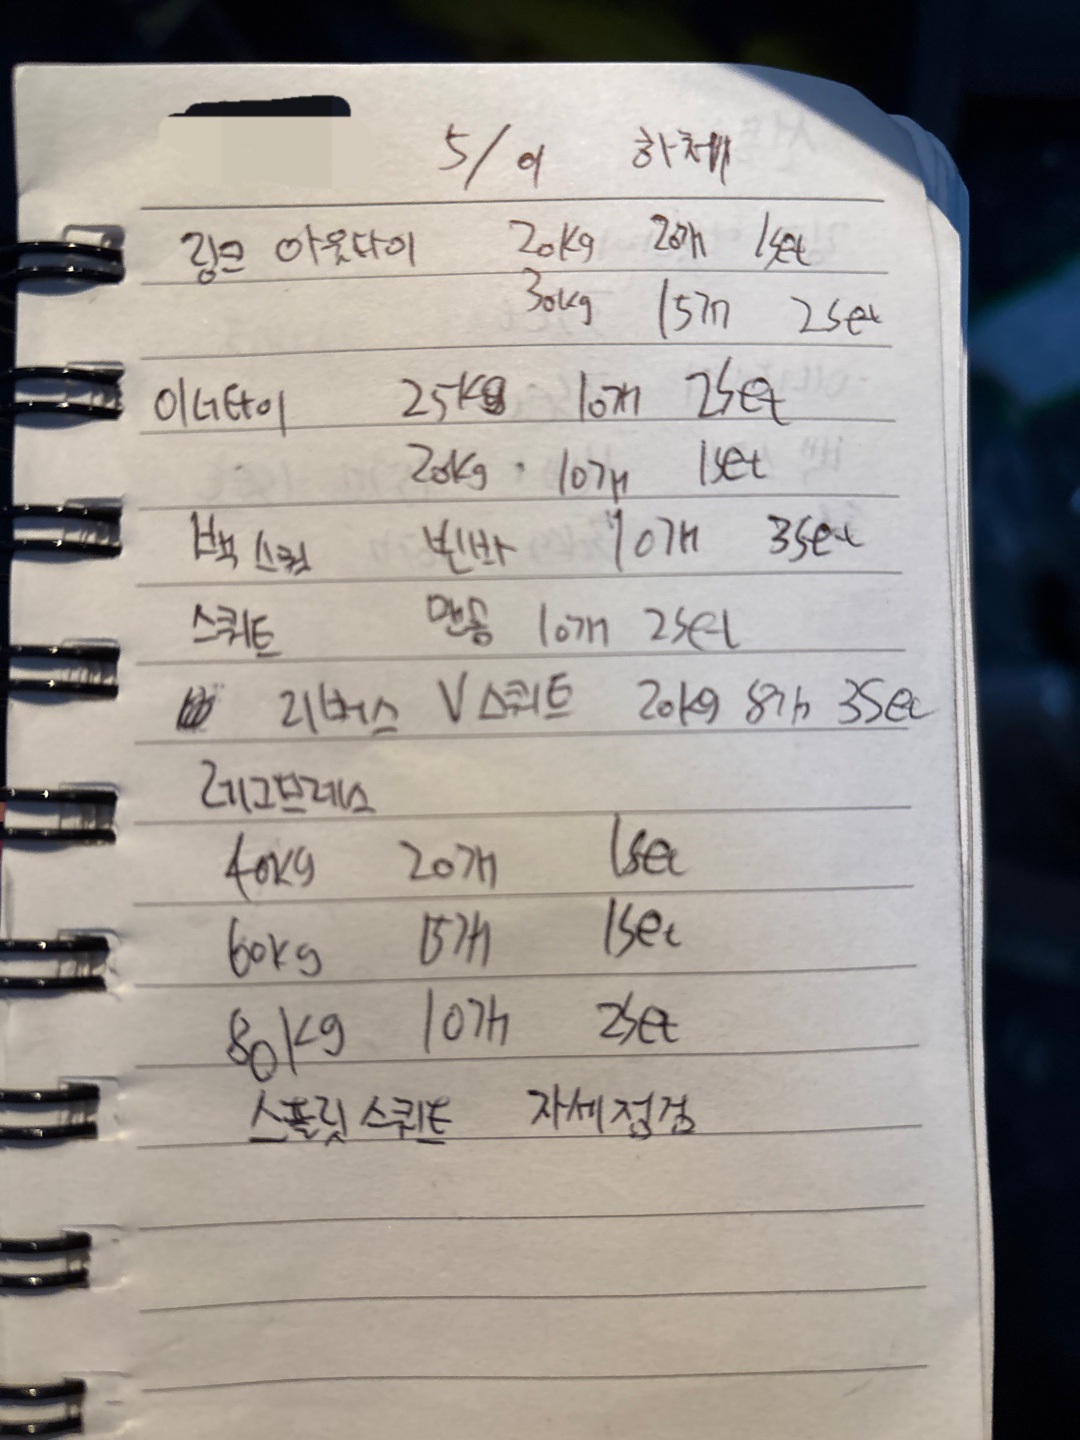 5/01 하체
링크 아웃타이 20kg 20개 1set
30kg 15개 2set
이너타이 25kg 10개 2set
20kg 10개 1set
백스쿼 빈바 10개 3set
스쿼트 맨몸 10개 2set
리버스 V스쿼트 20kg 8개 3set
레그프레스
40kg 20개 1set
60kg 15개 1set
80kg 10개 2set
스플릿스쿼트 자세점검